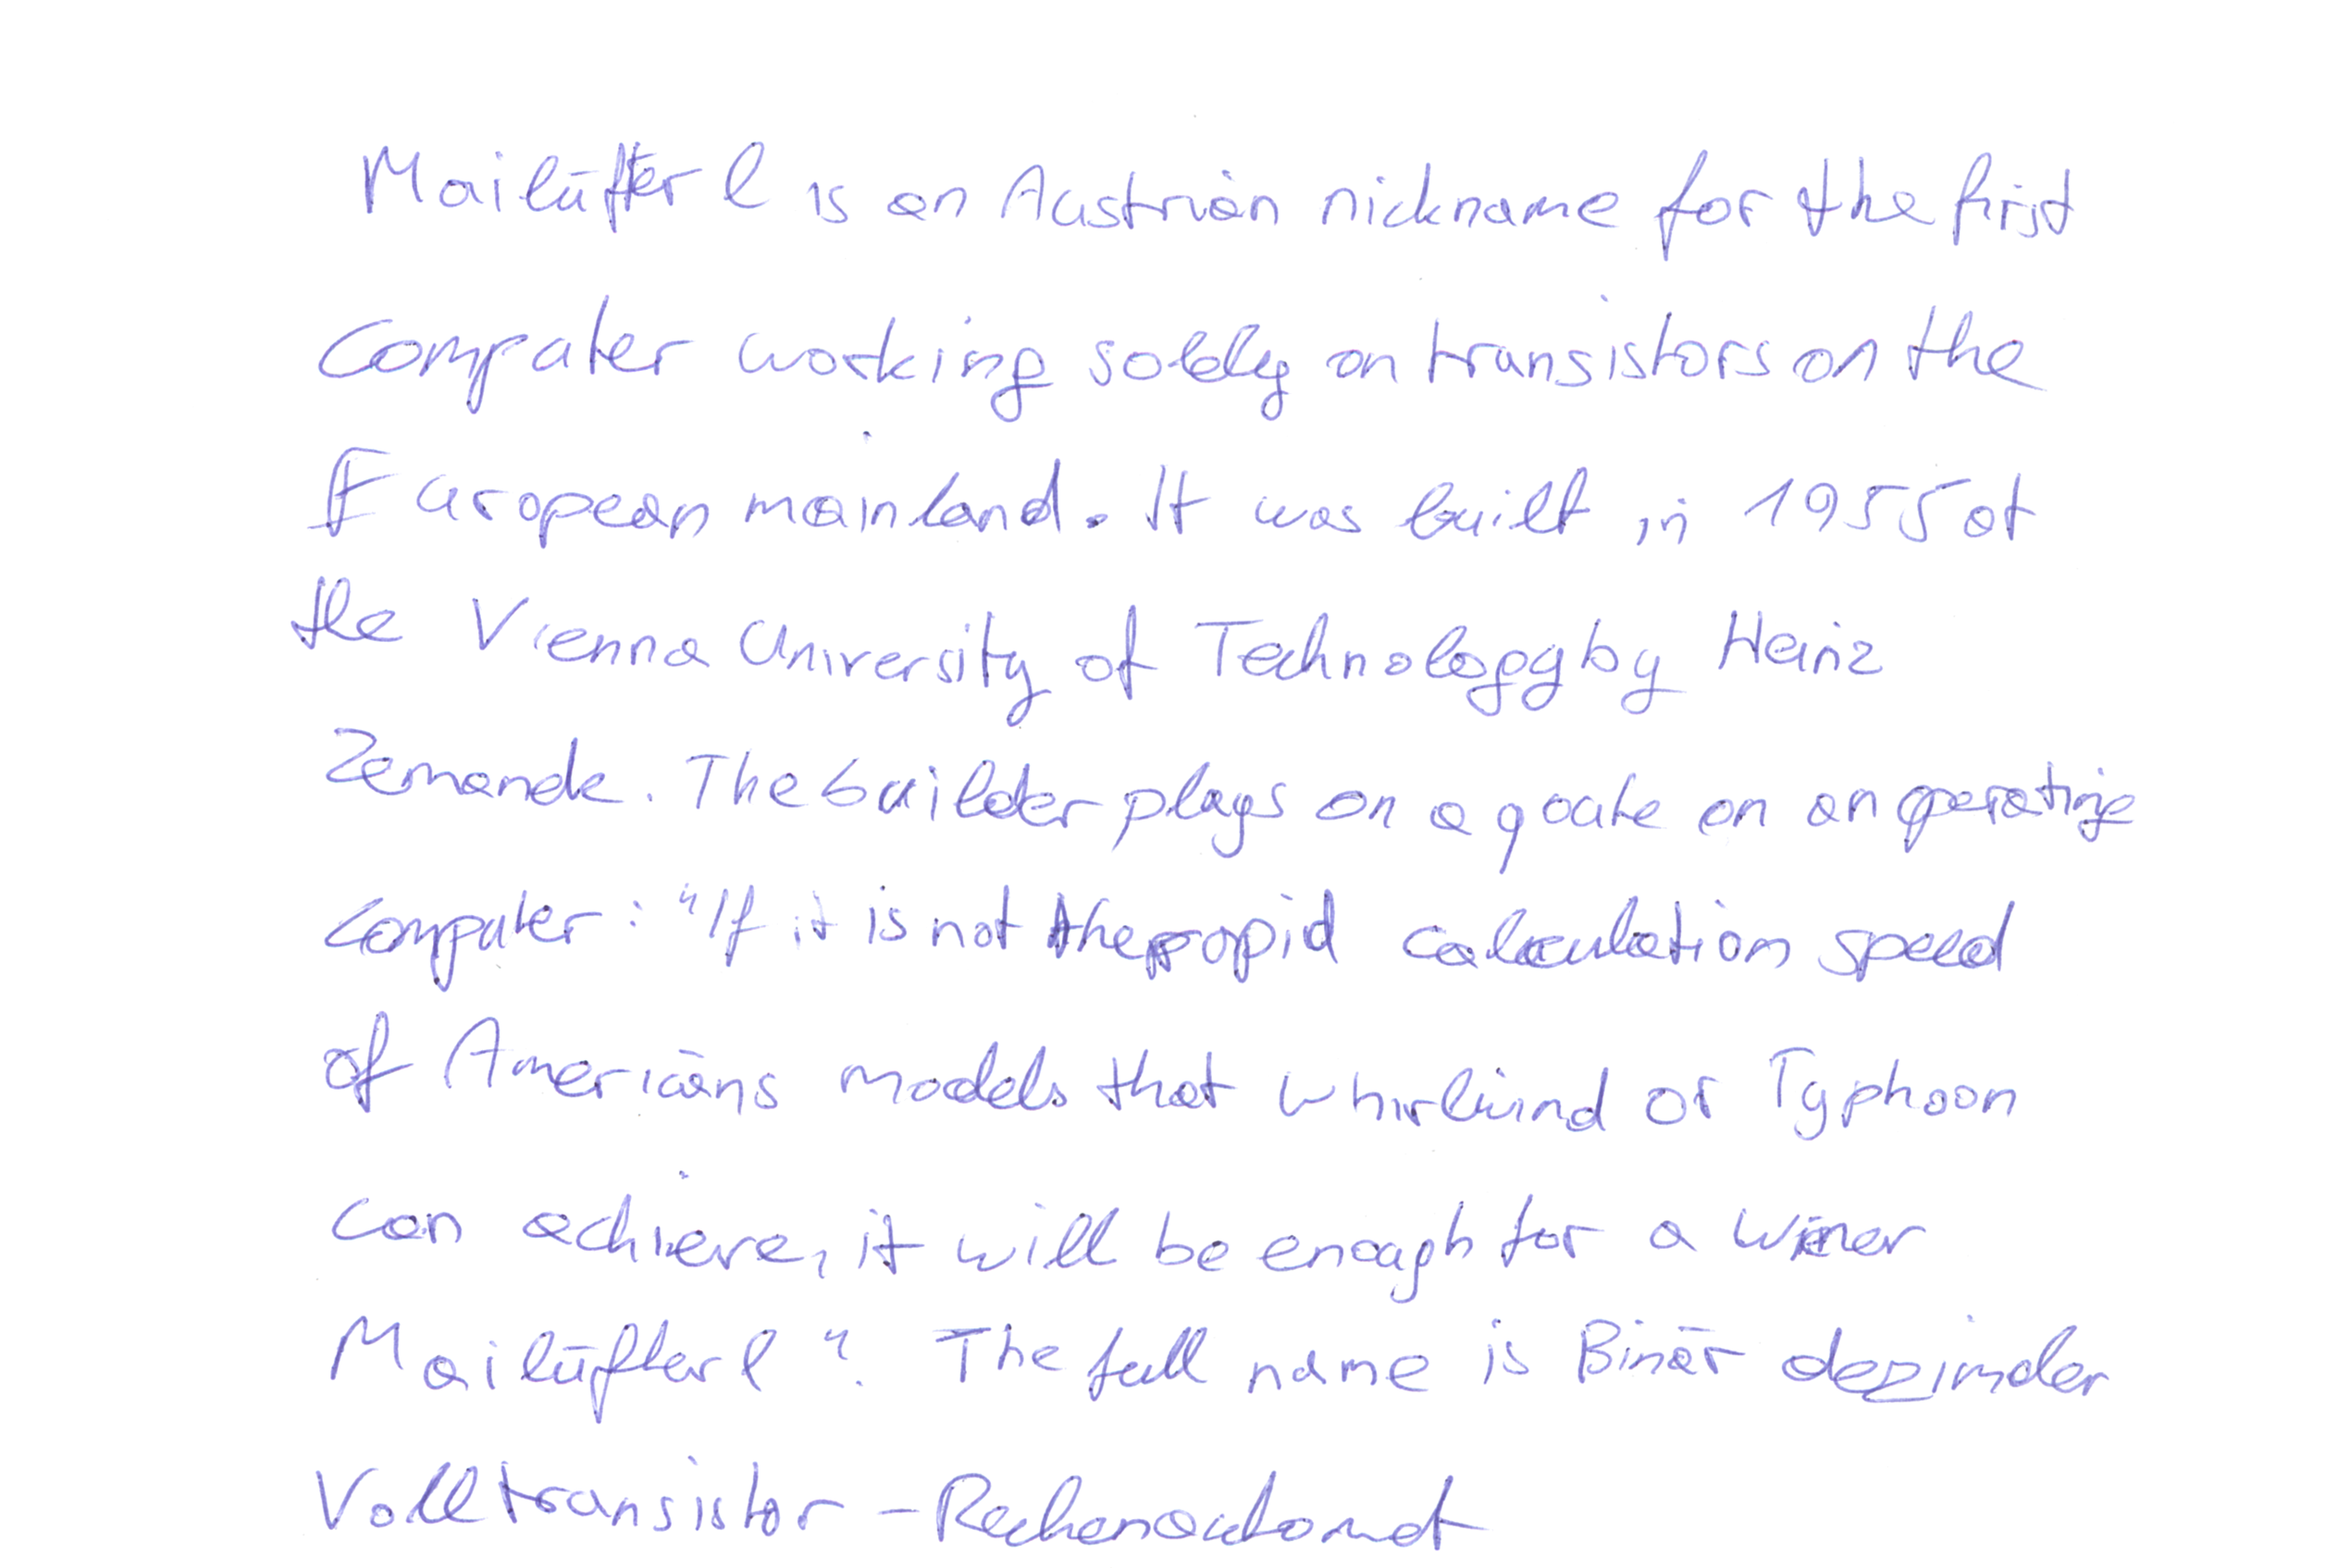 Mailüfterl is an Austrian nickname for the first
Computer working solely on transistors on the
European mainland. It was built in 1955 at
the Vienna University of Technology by Heinz
Zemande. The builder plays on a qoute on an operating
Computer: "If it is not the rapid calculation speed
of Americans models that Whirlwind or Typhoon
can achieve, it will be enough for a Wiener
Mailüfterl". The full name is Binär dezimaler
Volltransistor-Rechenautomat